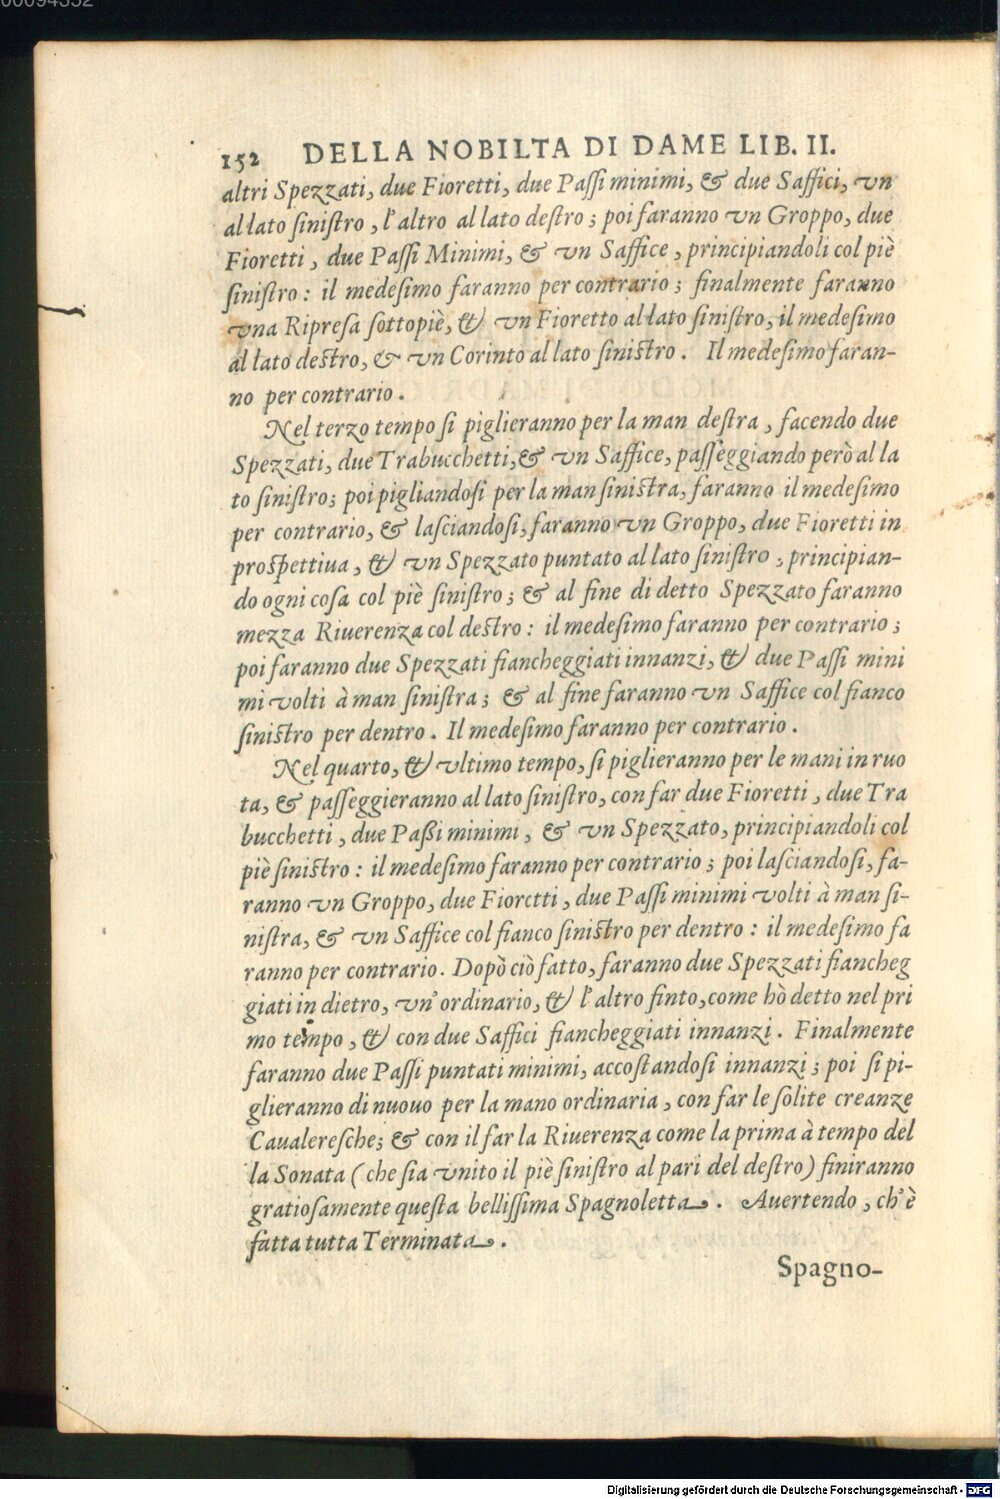 00094352
152 DELLA NOBILTA DI DAME LIB. II.
altri Spezzati, due Fioretti, due Paſſi minimi, & due Saffici, vn
al lato ſiniſtro, l'altro al lato deſtro; poi faranno vn Groppo, due
Fioretti, due Paſſi Minimi, & vn Saffice, principiandoli col piè
ſiniſtro: il medeſimo faranno per contrario; finalmente faranno
vna Ripreſa ſottopiè, & vn Fioretto al lato ſiniſtro, il medeſimo
al lato deſtro, & vn Corinto al lato ſiniſtro. Il medeſimo faran-
no per contrario.
Nel terzo tempo ſi piglieranno per la man deſtra, facendo due
Spezzati, due Trabucchetti, & vn Saffice, paſſeggiando però al la
to ſiniſtro; poi pigliandoſi per la man ſiniſtra, faranno il medeſimo
per contrario, & laſciandoſi, faranno vn Groppo, due Fioretti in
proſpettiua, & vn Spezzato puntato al lato ſiniſtro, principian-
do ogni coſa col piè ſiniſtro; & al fine di detto Spezzato faranno
mezza Riuerenza col deſtro: il medeſimo faranno per contrario;
poi faranno due Spezzati fiancheggiati innanzi, & due Paſſi mini
mi volti à man ſiniſtra; & al fine faranno vn Saffice col fianco
ſiniſtro per dentro. Il medeſimo faranno per contrario.
Nel quarto, & vltimo tempo, ſi piglieranno per le mani in ruo
ta, & paſſeggieranno al lato ſiniſtro, con far due Fioretti, due Tra
bucchetti, due Paßi minimi, & vn Spezzato, principiandoli col
piè ſiniſtro: il medeſimo faranno per contrario; poi laſciandoſi, fa-
ranno vn Groppo, due Fioretti, due Paſſi minimi volti à man ſi-
niſtra, & vn Saffice col fianco ſiniſtro per dentro: il medeſimo fa
ranno per contrario. Dopò ciò fatto, faranno due Spezzati fiancheg
giati in dietro, vn' ordinario, & l'altro finto, come hò detto nel pri
mo tempo, & con due Saffici fiancheggiati innanzi. Finalmente
faranno due Paſſi puntati minimi, accoſtandoſi innanzi; poi ſi pi-
glieranno di nuouo per la mano ordinaria, con far le ſolite creanze
Caualereſche; & con il far la Riuerenza come la prima à tempo del
la Sonata (che ſia vnito il piè ſiniſtro al pari del deſtro) finiranno
gratioſamente queſta belliſſima Spagnoletta. Auertendo, ch'è
fatta tutta Terminata.
Spagno-
Digitalisierung gefördert durch die Deutsche Forschungsgemeinschaft - DFG